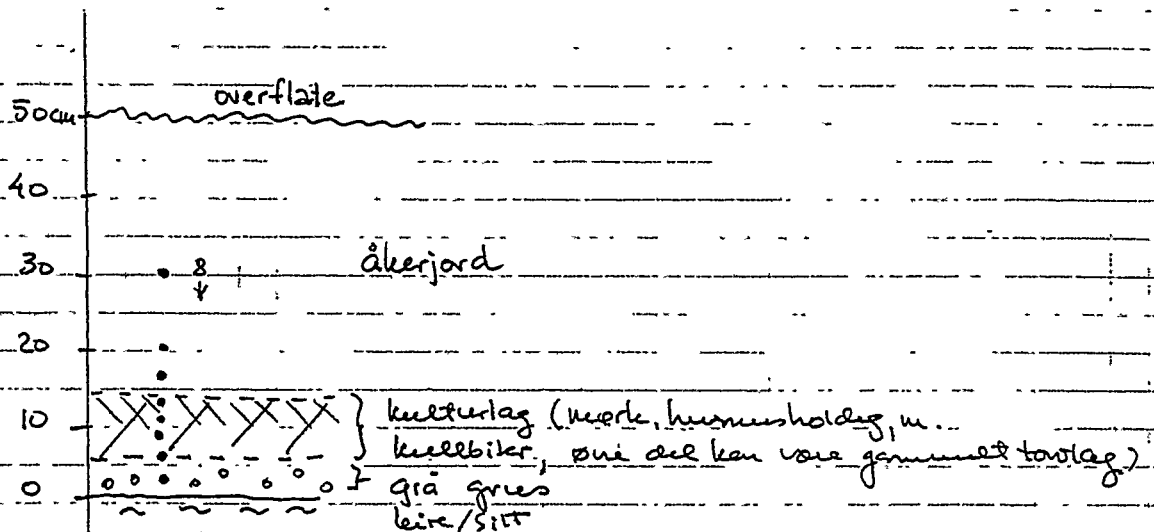 overflate
50cm
40
30
8
åkerjord
20
10
kulturlag (mørk, humusholdig, m.
kullbiter, øvre del kan være gammelt torvlag)
0
grå grus
leire/silt